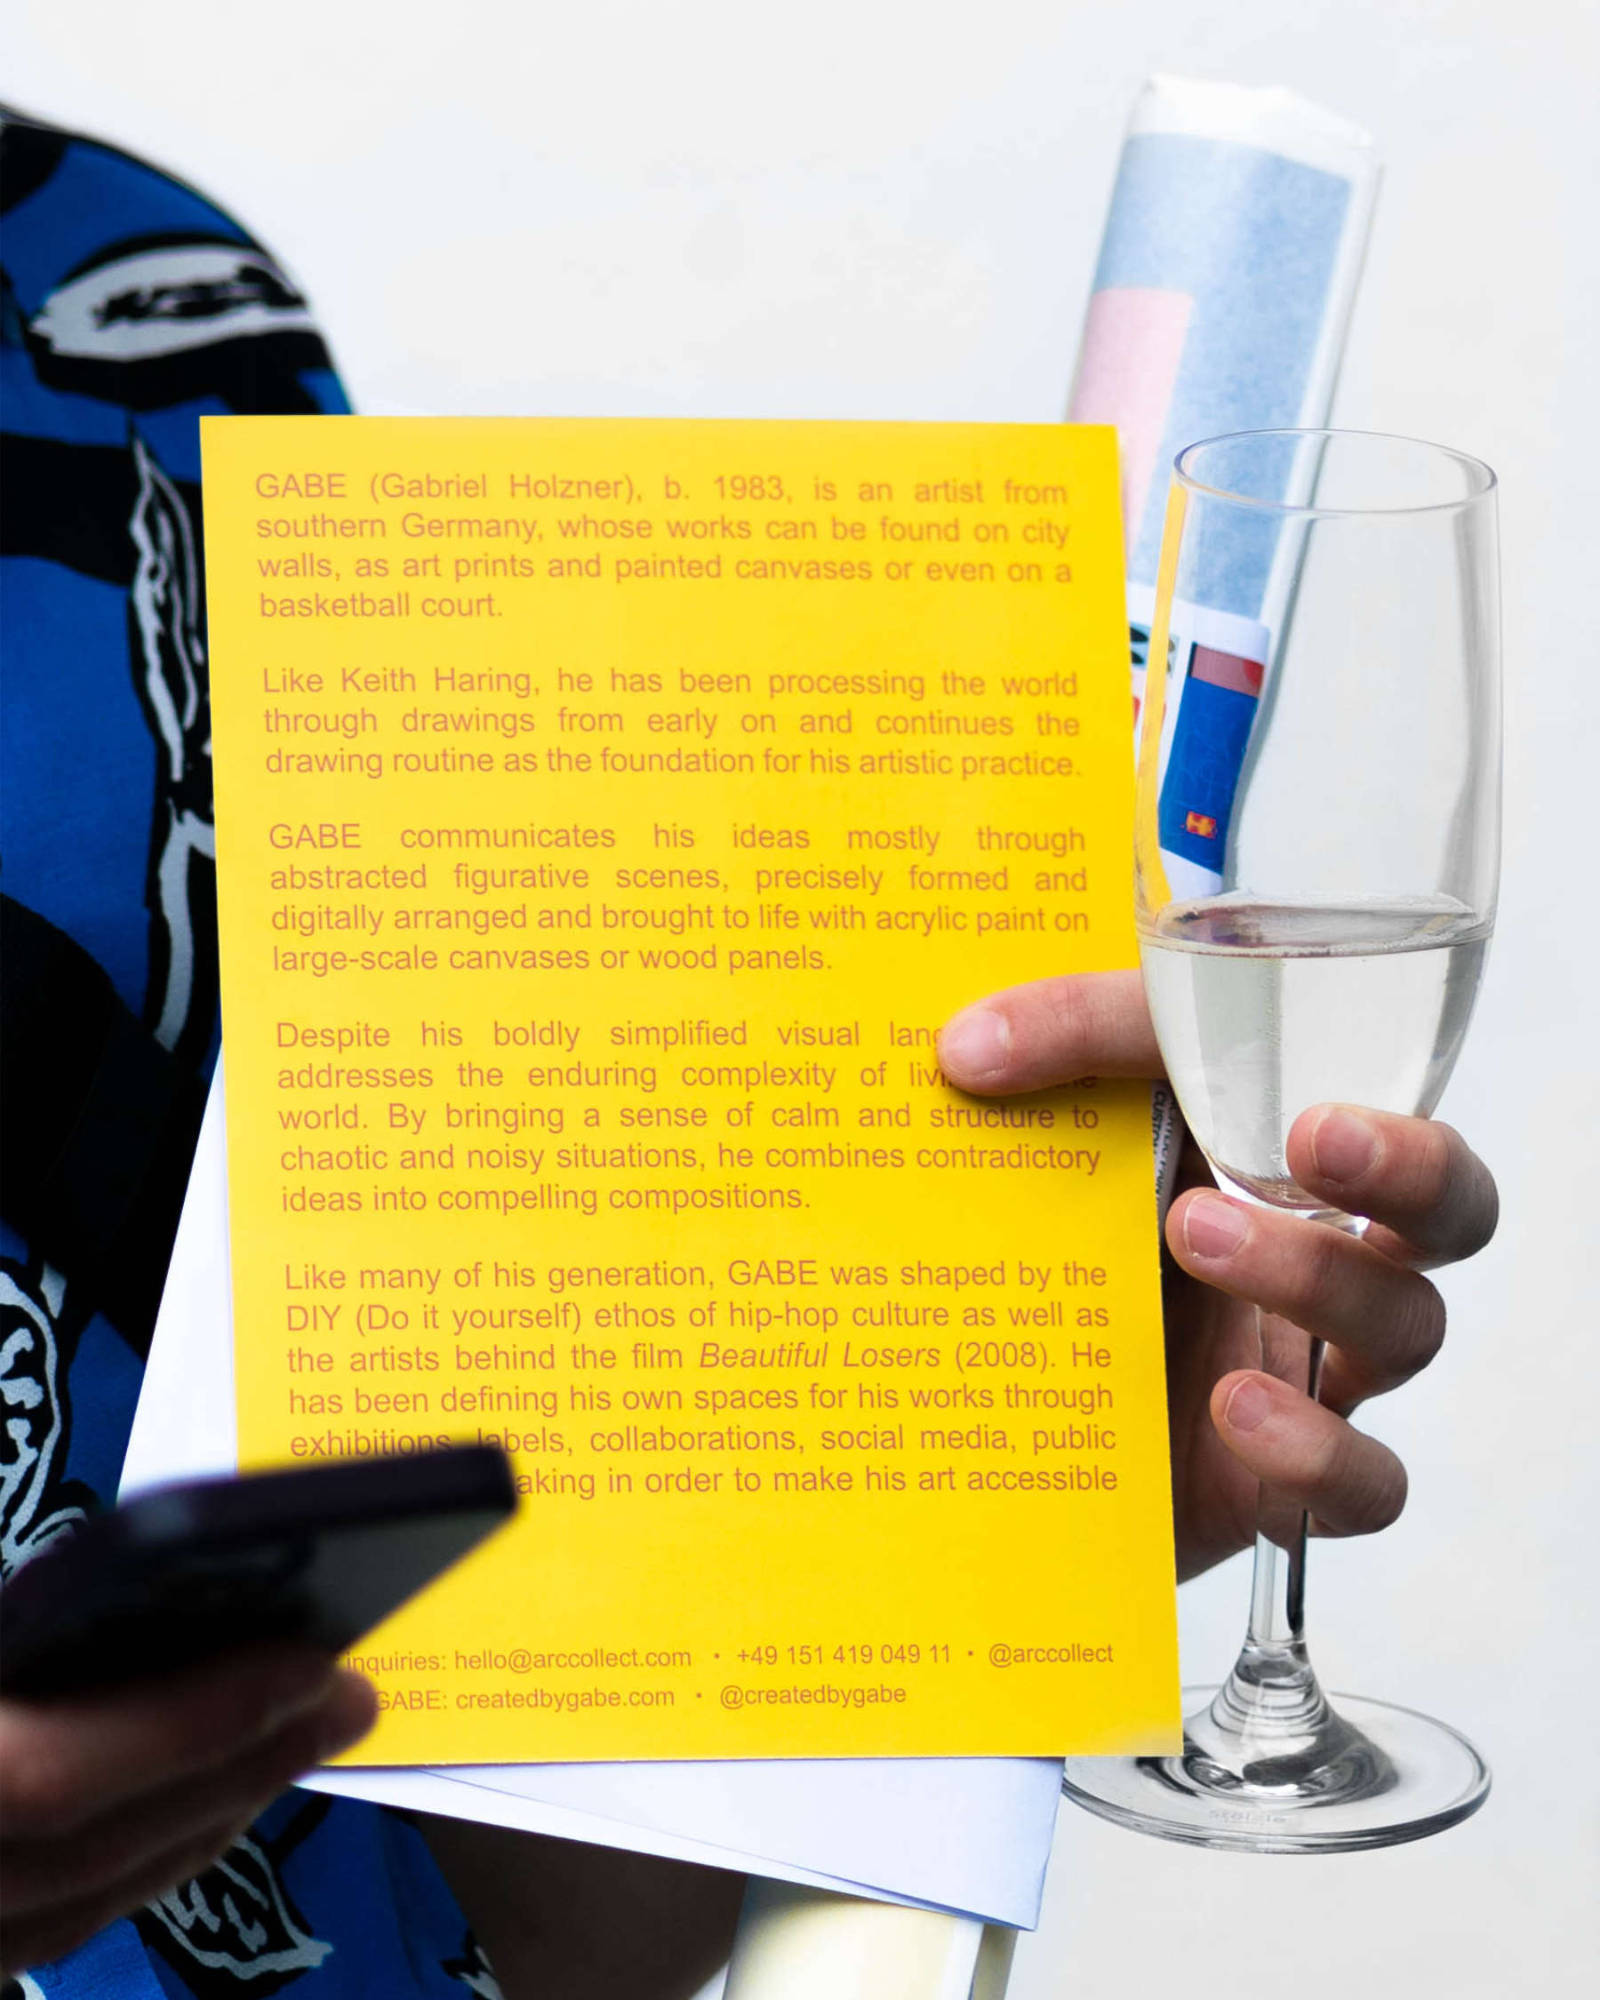 GABE (Gabriel Holzner), b. 1983, is an artist from
southern Germany, whose works can be found on city
walls, as art prints and painted canvases or even on a
basketball court.
Like Keith Haring, he has been processing the world
through drawings from early on and continues the
drawing routine as the foundation for his artistic practice.
GABE communicates his ideas mostly through
abstracted figurative scenes, precisely formed and
digitally arranged and brought to life with acrylic paint on
large-scale canvases or wood panels.
Despite his boldly simplified visual
addresses the enduring complexity of
world. By bringing a sense of calm and structure to
chaotic and noisy situations, he combines contradictory
ideas into compelling compositions.
Like many of his generation, GABE was shaped by the
DIY (Do it yourself) ethos of hip-hop culture as well as
the artists behind the film Beautiful Losers (2008). He
has been defining his own spaces for his works through
exhibitions, labels, collaborations, social media, public
in order to make his art accessible
inquiries: hello@arccollect.com • +49 151 419 049 11 • @arccollect
GABE: createdbygabe.com • @createdbygabe